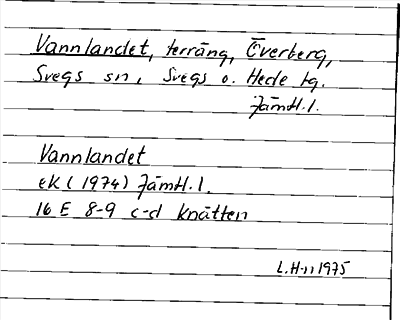 Vannlandet, terräng, Överberg,
Svegs sn, Svegs o. Hede tg.
Jämtl.l.
Vannlandet
eK (1974) Jämtl.l.
16 E 8-9 c-d Knätten
L.H-n 1975